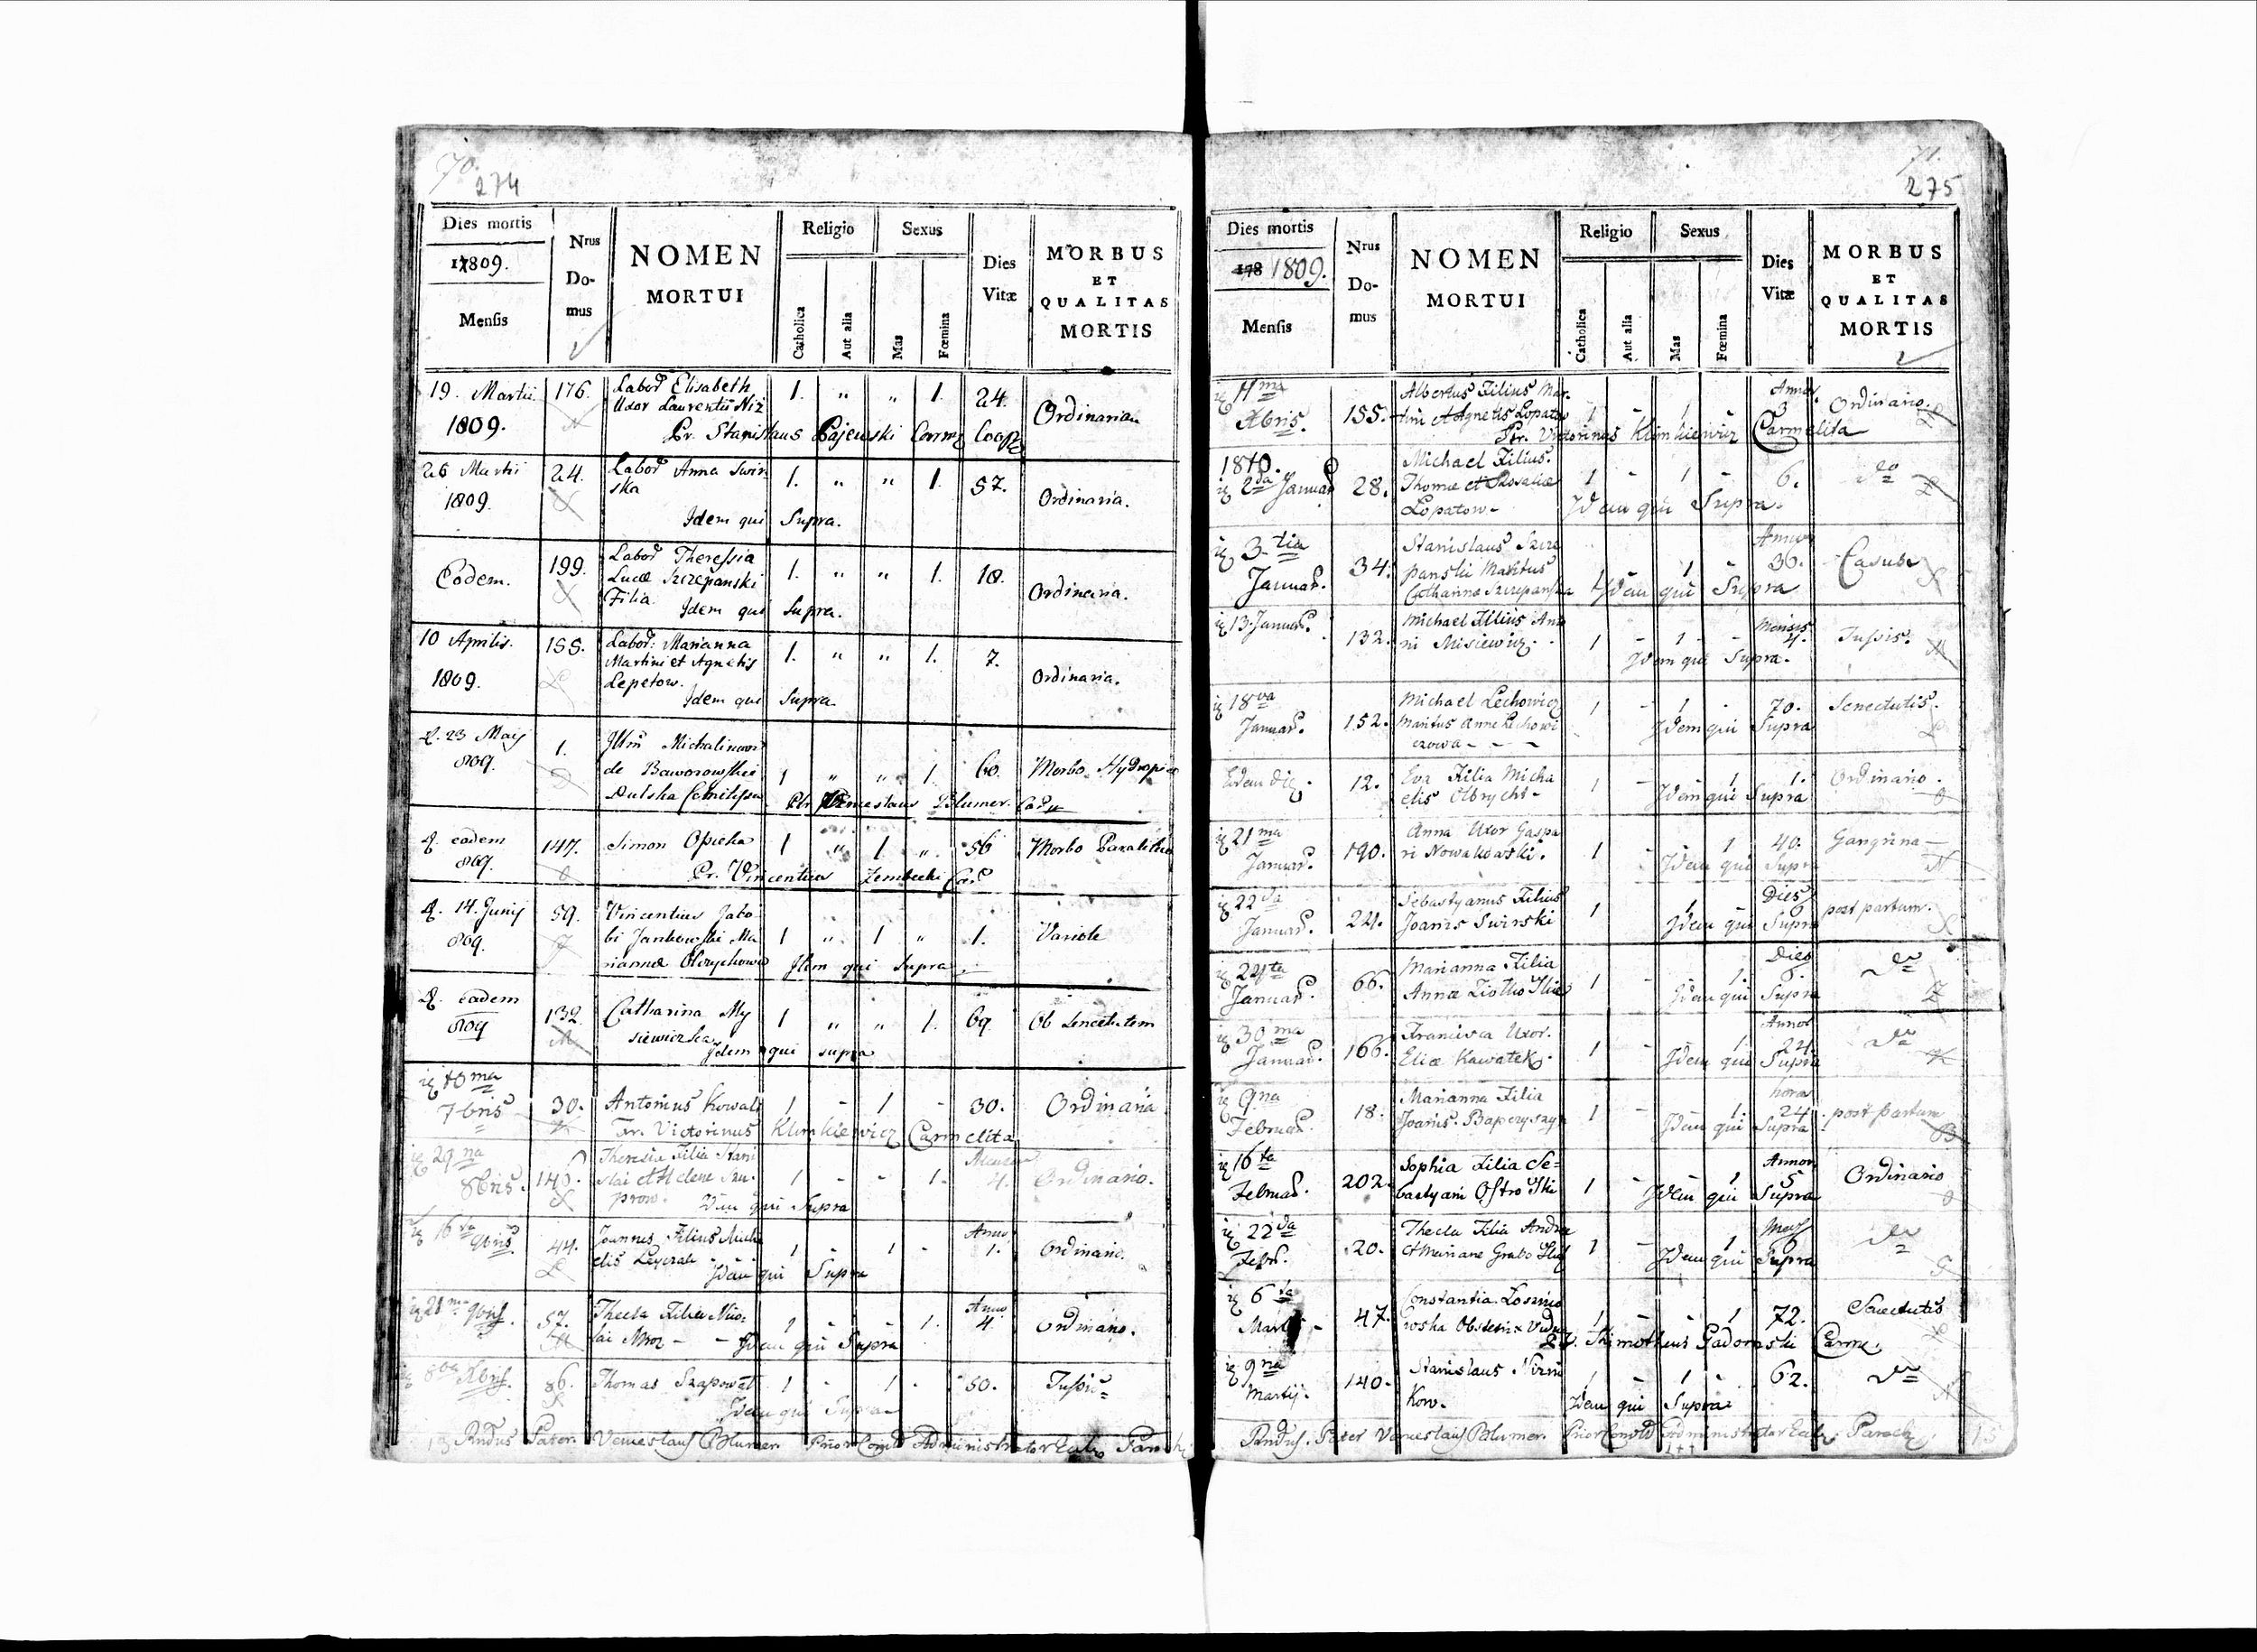 70.
274
Dies mortis
1809.
Mensis
Nrus Do-mus
NOMEN MORTUI
Religio
Catholica
Aut alia
Sexus
Mas
Fœmina
Dies Vitæ
MORBUS ET QUALITAS MORTIS
19. Martii 1809. 176. Labor Elisabeth Uxor Laurentii Niz 1. " " 1. 24. Ordinaria
Pr. Stanislaus Gajewski Carm Coop
26 Martii 1809. 24. Labor Anna Swirska 1. " " 1. 57. Ordinaria.
Idem qui Supra.
Eodem. 199. Labor Theressia Lucæ Szczepanski Filia 1. " " 1. 18. Ordinaria.
Idem qui Supra.
10 Aprilis. 1809. 155. Labor: Marianna Martini et Agnetis Lepetow. 1. " " 1. 7. Ordinaria.
Idem qui Supra
d. 23 Maij 809. 1. Michalinow de Baworowskie 1 " " 1. 60. Morbo Hydropico
Ptr Venceslaus Blumer.
d. eadem 809. 147. Simon Opicha 1 " 1 " 56 Morbo Paralitico
Pr. Vincentius Zembecki Car
d. 14. Junij 809. 59. Vincentius Jakobi Jankowski Mariannæ 1 " 1 " 1. Variole
Item qui Supra
d. eadem 809 132. Catharina Mysiewiczka 1 " " 1. 69. Ob Senectutem
Idem qui supra
10ma 7bris 30. Antonius Kowal 1 - 1 - 30. Ordinaria
Fr. Victorinus Klimkiewicz Carmelita
29na 8bris. 146. Theresia Filia Stanislai et Helene 1 - - 1. 4. Ordinario.
Idem qui Supra
16ta 9bris 44. Joannes Filius Michaelis 1 - 1 - Anno 1. Ordinario.
Idem qui Supra
21ma 9bris. 57. Thecla Filia Nicolai Mroz 1 - - 1. Anno 4. Ordinario.
Idem qui Supra
8va Xbris. 86. Thomas Szapowal 1 - 1 - 50. Tussis
Idem qui Supra
Rndus Pater Venceslaus Blumer. Prior Administrator
71.
275
Dies mortis
178 1809.
Mensis
Nrus Do-mus
NOMEN MORTUI
Religio
Catholica
Aut alia
Sexus
Mas
Fœmina
Dies Vitæ
MORBUS ET QUALITAS MORTIS
Xbris. 155. Albertus Filius Martini et Agnetis Lopatow 1 - 1 - 3 Ordinario.
Fr. Victorinus Klimkiewicz Carmelita
1810. 2da Januar 28. Michael Filius Thomæ et Rosaliæ Lopatow- 1 - 1 - 6. do
Idem qui Supra.
3tia Januar. 34. Stanislaus Szczepanski Maritus Catharina Szczepanska 1 - 1 - 30. Casus
Idem qui Supra
13 Januar. 132. Michael Filius Misiewicz 1 - 1 - Mensis 4. Tussis.
Idem qui Supra.
18va Januar. 152. Michael Lechowicz Maritus Anne Lechowiczowa 1 - 1 - 70. Senectutis.
Idem qui Supra
Eadem die 12. Eva Filia Michaelis Olbrycht- 1 - 1 1. Ordinario.
Idem qui Supra
21ma Januar. 190. Anna Uxor Gaspari Nowakowski. 1 - 1 40. Gangrina-
Idem qui Supra
22da Januar. 24. Sebastyanus Filius Joanis Swirski 1 - 1 Dies 6 post partum.
Idem qui Supra
24ta Januar. 66. Marianna Filia Annæ 1 - 1. Dies do
Idem qui Supra
30ma Januar. 166. Francisca Uxor Eliæ Kawatek 1 - 1. Annor 24. do
Idem qui Supra
9na Februar. 18. Marianna Filia Joanis 1 - 1. hora 24 post partum
Idem qui Supra
16ta Februar. 202. Sophia Filia Sebastyani Ostrowski 1 - 1 Annor 5 Ordinario
Idem qui Supra
22da Febr. 20. Thecla Filia Andreæ et Mariane Grabowski 1 - 1 6 do
Idem qui Supra
6ta Martij 47. Constantia Obstetrix Vidua 1 - - 1 72. Senectutis
Thimotheus Gadomski Carm.
9na Martij. 140. Stanislaus 1 - 1 - 62. do
Idem qui Supra
Rndus. Pater Venceslaus Blumer. Prior Administrator